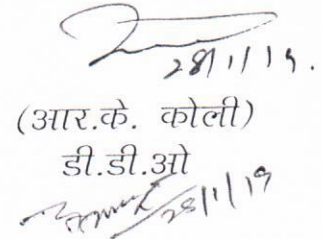 28/1/19.
(आर.के. कोली)
डी.डी.ओ
28/1/19